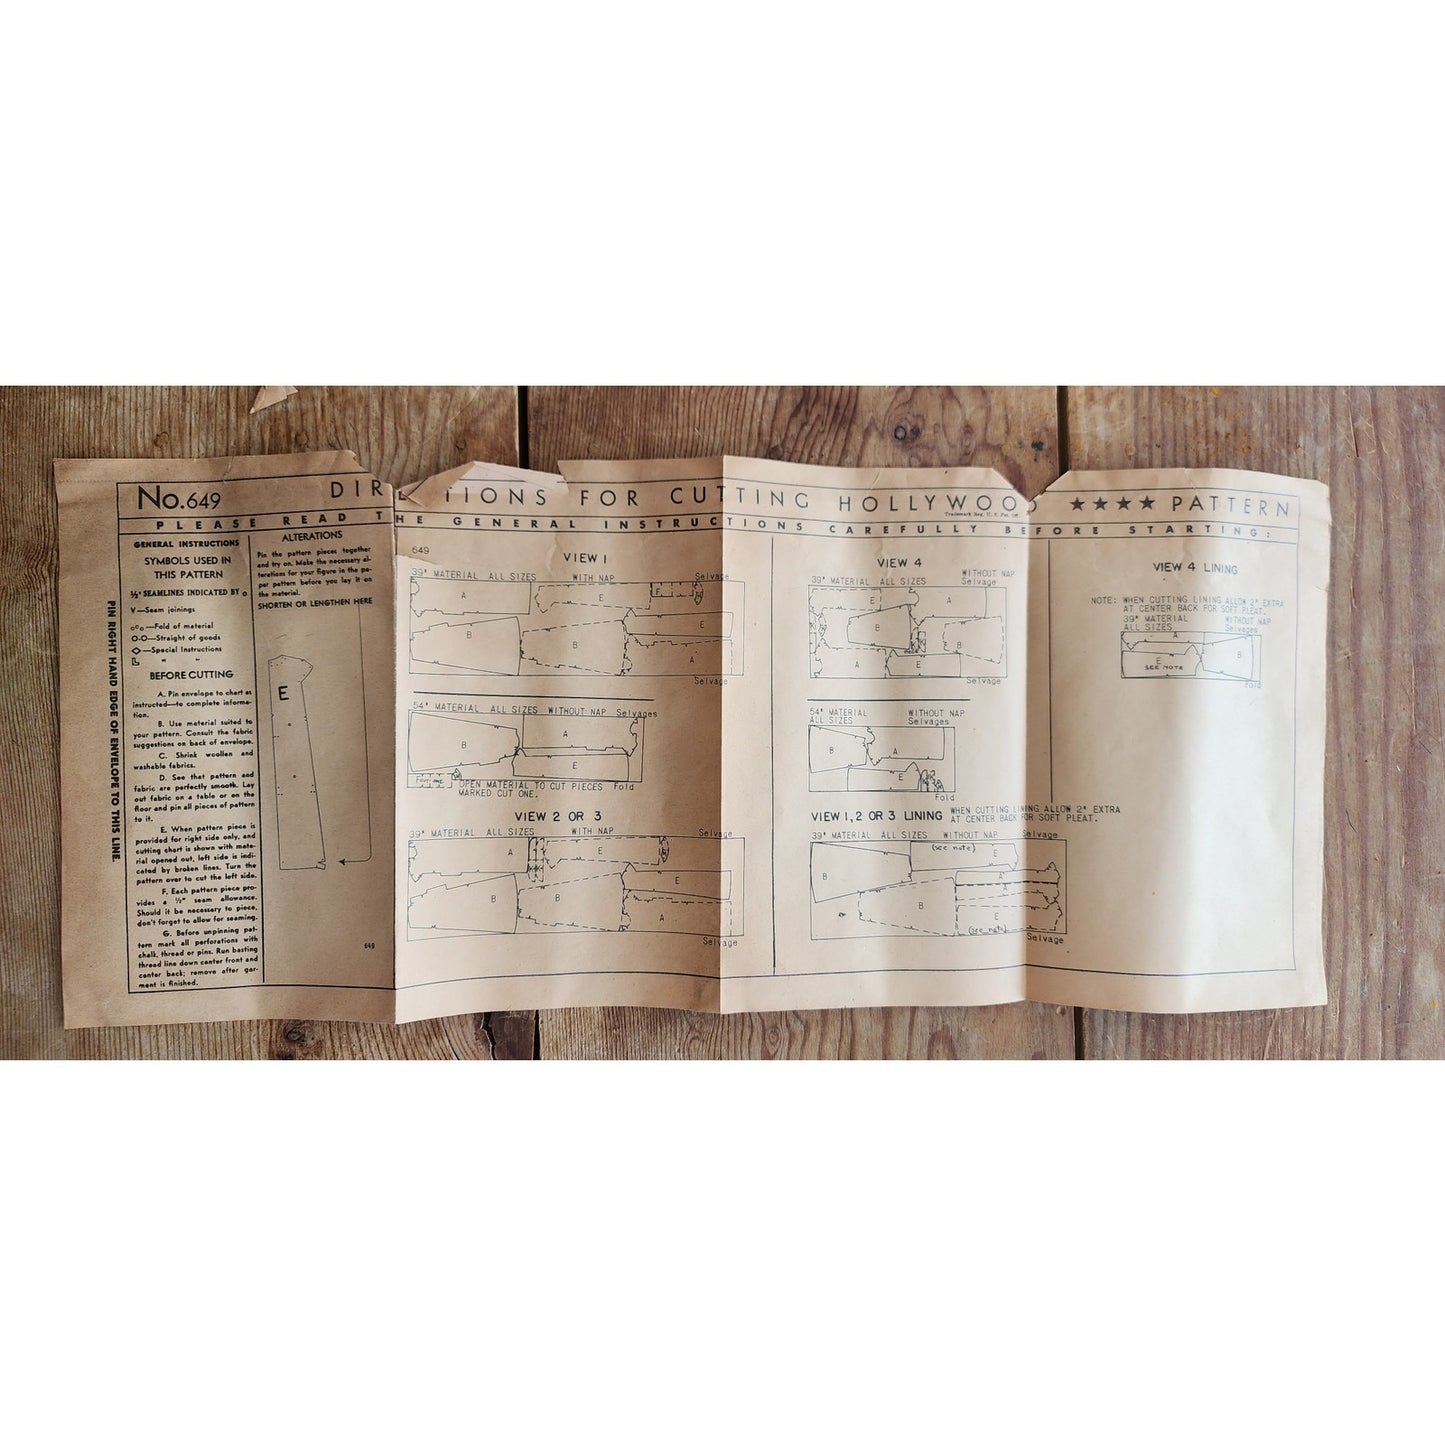 No.649 DIRECTIONS FOR CUTTING HOLLYWOOD ★★★★ PATTERN
Trademark Reg. U. S. Pat. Off.
PLEASE READ THE GENERAL INSTRUCTIONS CAREFULLY BEFORE STARTING:
PIN RIGHT HAND EDGE OF ENVELOPE TO THIS LINE.
GENERAL INSTRUCTIONS
SYMBOLS USED IN
THIS PATTERN
½" SEAMLINES INDICATED BY o
V—Seam joinings
—Fold of material
O-O—Straight of goods
◇—Special Instructions
" "
BEFORE CUTTING
A. Pin envelope to chart as
instructed—to complete informa-
tion.
B. Use material suited to
your pattern. Consult the fabric
suggestions on back of envelope.
C. Shrink woollen and
washable fabrics.
D. See that pattern and
fabric are perfectly smooth. Lay
out fabric on a table or on the
floor and pin all pieces of pattern
to it.
E. When pattern piece is
provided for right side only, and
cutting chart is shown with mate-
rial opened out, left side is indi-
cated by broken lines. Turn the
pattern over to cut the left side.
F. Each pattern piece pro-
vides a ½" seam allowance.
Should it be necessary to piece,
don't forget to allow for seaming.
G. Before unpinning pat-
tern mark all perforations with
chalk, thread or pins. Run basting
thread line down center front and
center back; remove after gar-
ment is finished.
ALTERATIONS
Pin the pattern pieces together
and try on. Make the necessary al-
terations for your figure in the pa-
per pattern before you lay it on
the material.
SHORTEN OR LENGTHEN HERE
E
649
649
VIEW 1
39" MATERIAL ALL SIZES WITH NAP Selvage
A E F
B B E
A
Selvage
54" MATERIAL ALL SIZES WITHOUT NAP Selvages
B A
E
Fold
OPEN MATERIAL TO CUT PIECES
MARKED CUT ONE.
VIEW 2 OR 3
39" MATERIAL ALL SIZES WITH NAP Selvage
A E
B B E
A
Selvage
VIEW 4
39" MATERIAL ALL SIZES WITHOUT NAP
Selvage
E A
B B
A E E
Selvage
54" MATERIAL WITHOUT NAP
ALL SIZES Selvages
B A
E
Fold
VIEW 1, 2 OR 3 LINING WHEN CUTTING LINING ALLOW 2" EXTRA
AT CENTER BACK FOR SOFT PLEAT.
39" MATERIAL ALL SIZES WITHOUT NAP Selvage
(see note)
B E
A
B A
E
(see note)
Selvage
VIEW 4 LINING
NOTE: WHEN CUTTING LINING ALLOW 2" EXTRA
AT CENTER BACK FOR SOFT PLEAT.
39" MATERIAL WITHOUT NAP
ALL SIZES Selvages
A
E B
SEE NOTE
Fold